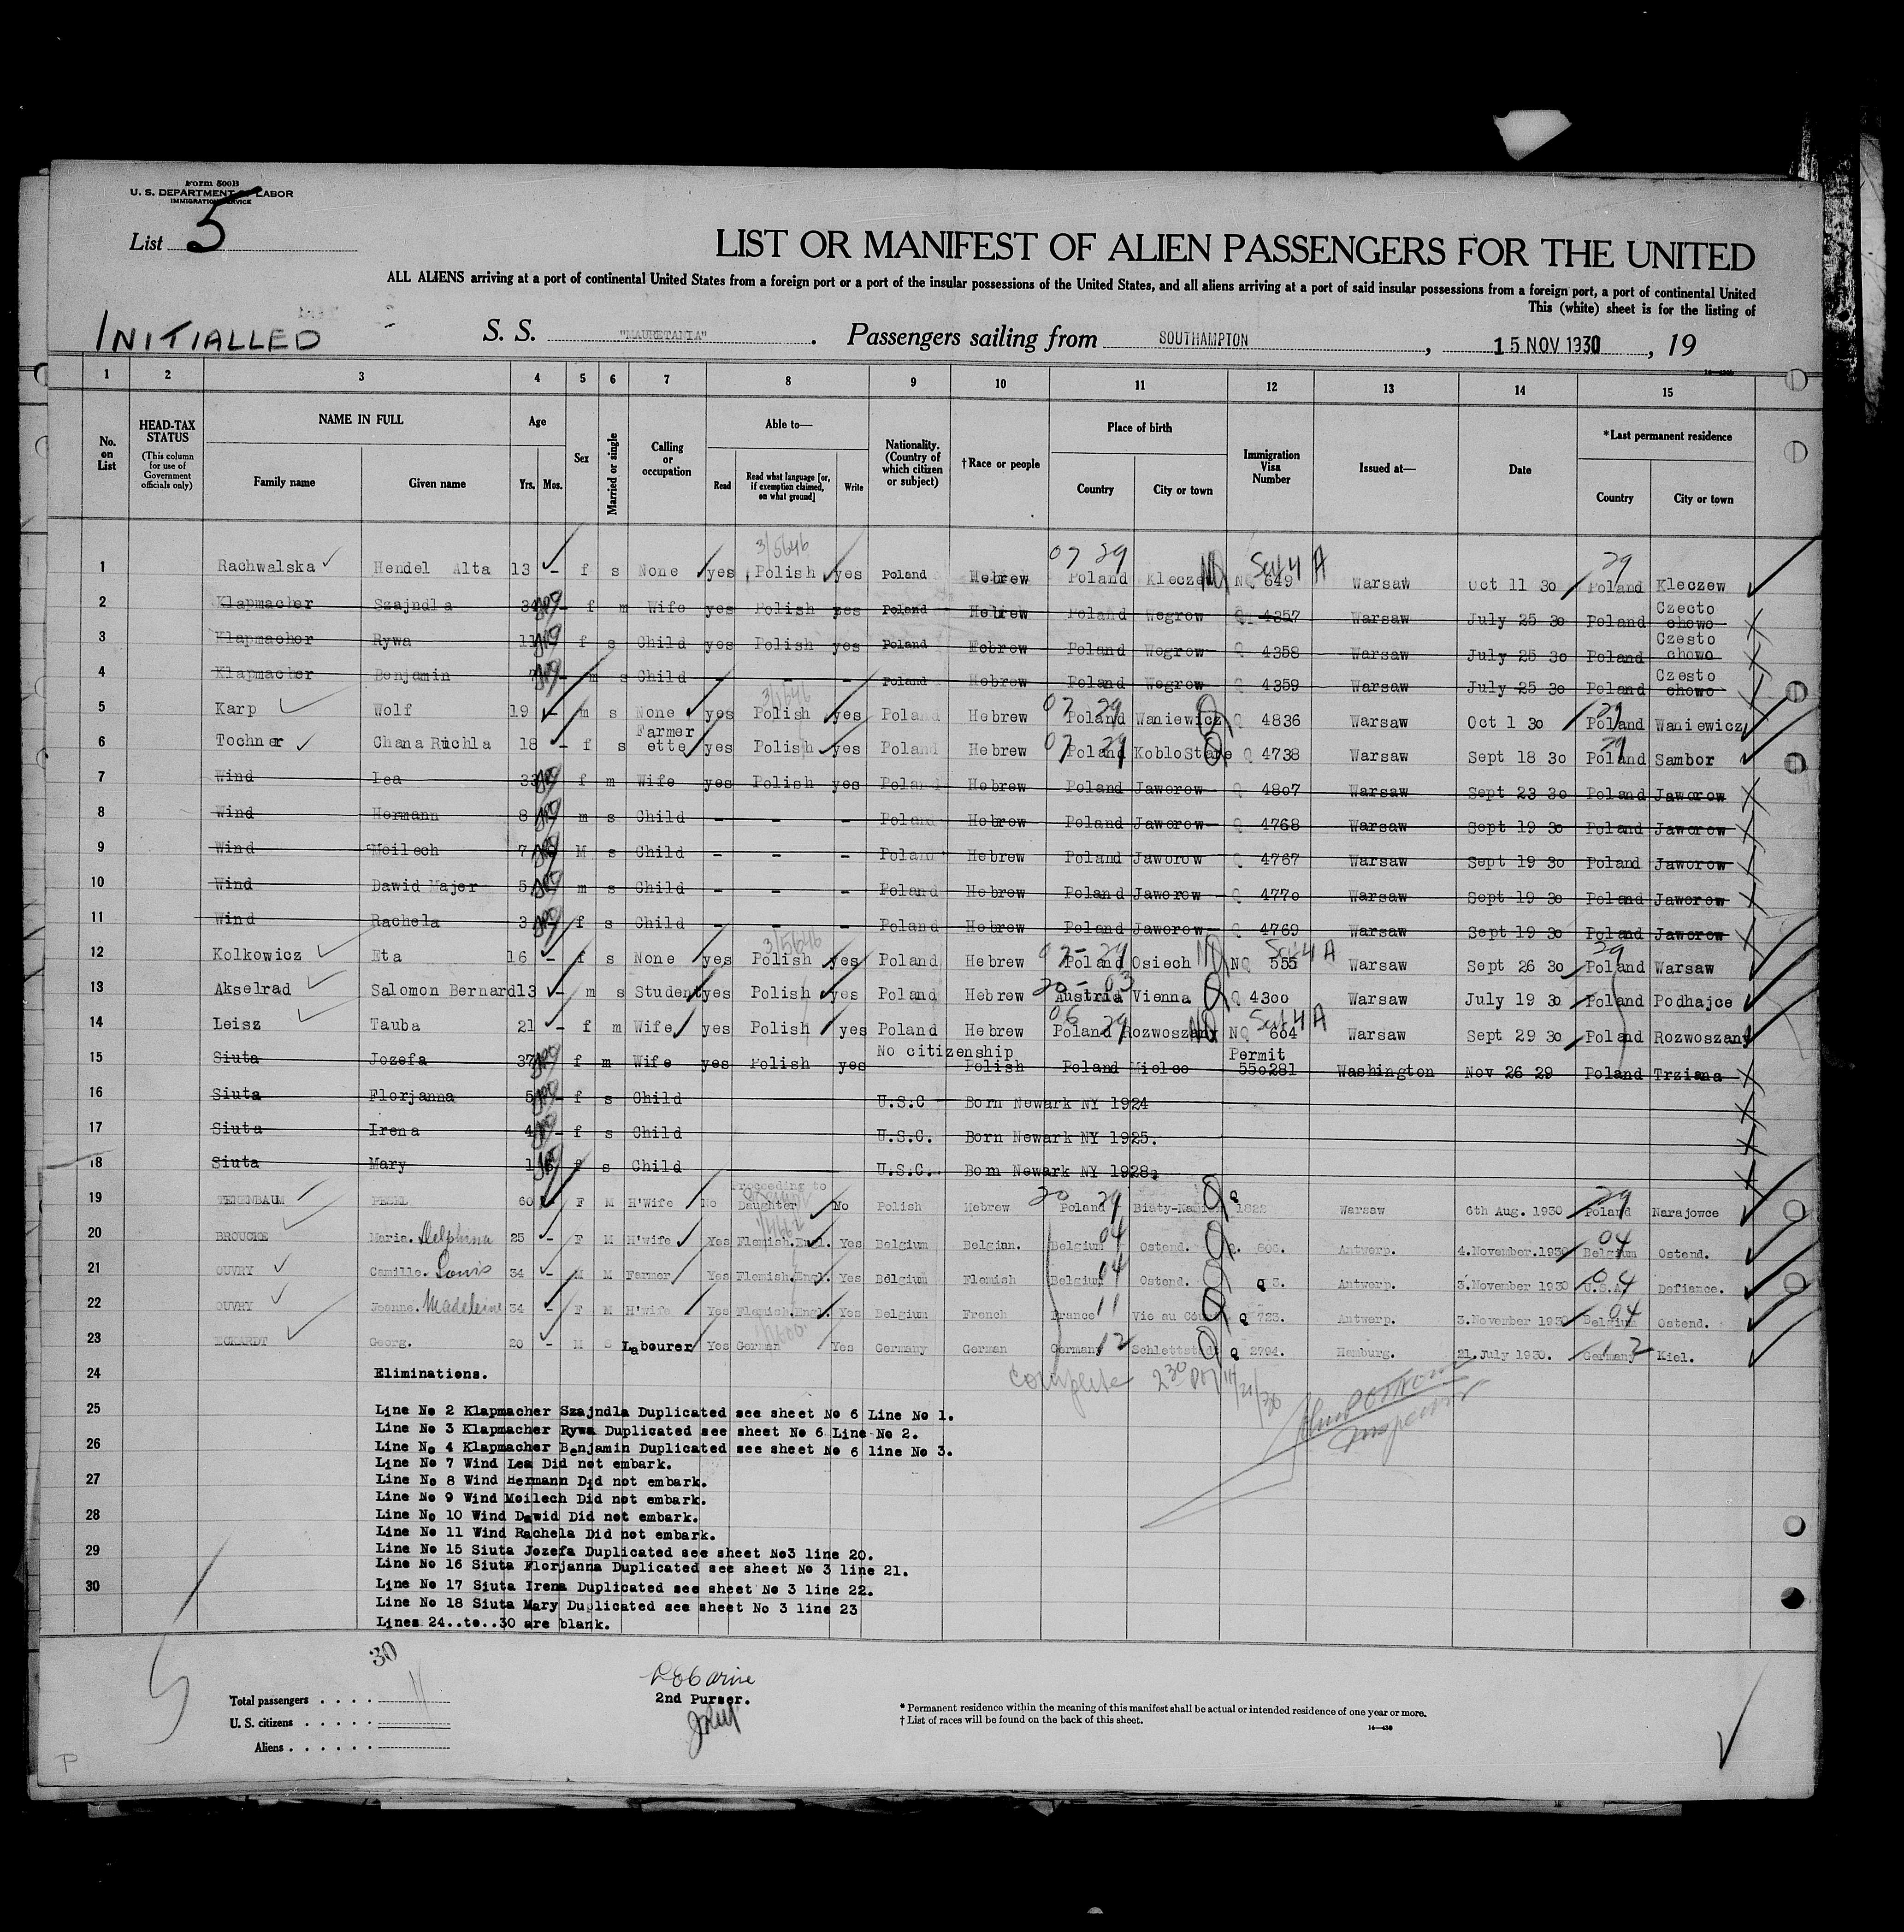 Form 500B
U. S. DEPARTMENT OF LABOR
IMMIGRATION SERVICE
List 5
LIST OR MANIFEST OF ALIEN PASSENGERS FOR THE UNITED
ALL ALIENS arriving at a port of continental United States from a foreign port or a port of the insular possessions of the United States, and all aliens arriving at a port of said insular possessions from a foreign port, a port of continental United
This (white) sheet is for the listing of
INITIALLED
S. S. "MAURETANIA". Passengers sailing from SOUTHAMPTON, 15 NOV 1930, 19
1 2 3 4 5 6 7 8 9 10 11 12 13 14 15
No. on List
HEAD-TAX STATUS (This column for use of Government officials only)
NAME IN FULL Family name Given name
Age Yrs. Mos.
Sex
Married or single
Calling or occupation
Able to— Read Read what language [or, if exemption claimed, on what ground] Write
Nationality. (Country of which citizen or subject)
†Race or people
Place of birth Country City or town
Immigration Visa Number
Issued at—
Date
*Last permanent residence Country City or town
1 Rachwalska Hendel Alta 13 - f s None yes Polish yes Poland Hebrew Poland Kleczew NQ 649 Warsaw Oct 11 30 Poland Kleczew
2 Klapmacher Szajndla 34 - f m Wife yes Polish yes Poland Hebrew Poland Wegrow Q 4357 Warsaw July 25 30 Poland Czecto chowo
3 Klapmacher Rywa 11 f s Child yes Polish yes Poland Hebrew Poland Wegrow Q 4358 Warsaw July 25 30 Poland Czesto chowo
4 Klapmacher Benjamin 7 - m s Child - - - Poland Hebrew Poland Wegrow Q 4359 Warsaw July 25 30 Poland Czesto chowo
5 Karp Wolf 19 - m s None yes Polish yes Poland Hebrew Poland Waniewicz Q 4836 Warsaw Oct 1 30 Poland Waniewicz
6 Tochner Chana Ruchla 18 - f s Farmer ette yes Polish yes Poland Hebrew Poland KobloStare Q 4738 Warsaw Sept 18 30 Poland Sambor
7 Wind Lea 33 f m Wife yes Polish yes Poland Hebrew Poland Jaworow Q 4807 Warsaw Sept 23 30 Poland Jaworow
8 Wind Hermann 8 m s Child - - - Poland Hebrew Poland Jaworow Q 4768 Warsaw Sept 19 30 Poland Jaworow
9 Wind Meilech 7 M s Child - - - Poland Hebrew Poland Jaworow Q 4767 Warsaw Sept 19 30 Poland Jaworow
10 Wind Dawid Majer 5 m s Child - - - Poland Hebrew Poland Jaworow Q 4770 Warsaw Sept 19 30 Poland Jaworow
11 Wind Rachela 3 f s Child - - - Poland Hebrew Poland Jaworow Q 4769 Warsaw Sept 19 30 Poland Jaworow
12 Kolkowicz Eta 16 - f s None yes Polish yes Poland Hebrew Poland Osiech NQ 555 Warsaw Sept 26 30 Poland Warsaw
13 Akselrad Salomon Bernard 13 - m s Student yes Polish yes Poland Hebrew Austria Vienna Q 4300 Warsaw July 19 30 Poland Podhajce
14 Leisz Tauba 21 - f m Wife yes Polish yes Poland Hebrew Poland Rozwoszany NQ 604 Warsaw Sept 29 30 Poland Rozwoszany
15 Siuta Jozefa 37 f m Wife yes Polish yes No citizenship Polish Poland Mielco Permit 550281 Washington Nov 26 29 Poland Trziana
16 Siuta Florjanna 5 - f s Child U.S.C Born Newark NY 1924
17 Siuta Irena 4 - f s Child U.S.C. Born Newark NY 1925.
18 Siuta Mary 1 f s Child U.S.C. Born Newark NY 1928.
19 TEIGENBAUM PESEL 60 F M H'Wife No Proceeding to Daughter No Polish Hebrew Poland Q 1822 Warsaw 6th Aug. 1930 Poland Narajowce
20 BROUCKE Maria. Delphina 25 - F M H'wife Yes Flemish.Engl. Yes Belgium Belgian. Belgium Ostend. Antwerp. 4.November.1930 Belgium Ostend.
21 OUVRY Camille. Louis 34 - M M Farmer Yes Flemish.Engl. Yes Belgium Flemish Belgium Ostend. Q 3. Antwerp. 3.November 1930 U.S.A. Defiance.
22 OUVRY Jeanne. Madeleine 34 - F M H'wife Yes Flemish.Engl. Yes Belgium French France Q 723. Antwerp. 3.November 1930 Belgium Ostend.
23 ECKARDT Georg. 20 - M S Labourer Yes German Yes Germany German Germany Schlettstadt Q 2794. Hamburg. 21.July 1930. Germany Kiel.
24 Eliminations. complete 2 30 PM 11/21/30
25 Line No 2 Klapmacher Szajndla Duplicated see sheet No 6 Line No 1.
Line No 3 Klapmacher Rywa Duplicated see sheet No 6 Line No 2.
26 Line No 4 Klapmacher Benjamin Duplicated see sheet No 6 line No 3.
Line No 7 Wind Lea Did not embark.
27 Line No 8 Wind Hermann Did not embark.
Line No 9 Wind Meilech Did not embark.
28 Line No 10 Wind Dawid Did not embark.
Line No 11 Wind Rachela Did not embark.
29 Line No 15 Siuta Jozefa Duplicated see sheet No3 line 20.
Line No 16 Siuta Florjanna Duplicated see sheet No 3 line 21.
30 Line No 17 Siuta Irena Duplicated see sheet No 3 line 22.
Line No 18 Siuta Mary Duplicated see sheet No 3 line 23
Lines 24..to..30 are blank.
30
Total passengers . . . . 11
U. S. citizens . . . . .
Aliens . . . . . .
2nd Purser.
* Permanent residence within the meaning of this manifest shall be actual or intended residence of one year or more.
† List of races will be found on the back of this sheet.
14—430